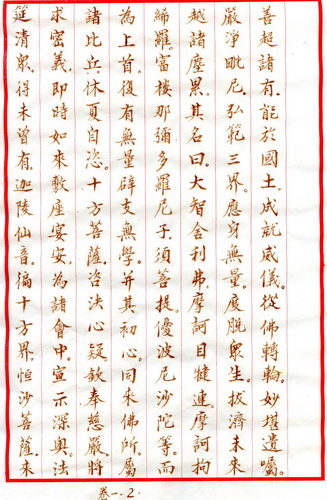 善超諸有。能於國土。成就威儀。從佛轉輪。妙堪遺囑。
嚴淨毗尼。弘範三界。應身無量。度脫眾生。拔濟未來。
越諸塵累。其名曰。大智舍利弗。摩訶目犍連。摩訶拘
絺羅。富樓那彌多羅尼子。須菩提。優波尼沙陀等。而
為上首。復有無量辟支無學。并其初心。同來佛所。屬
諸比丘。休夏自恣。十方菩薩。咨決心疑。欽奉慈嚴。將
求密義。即時如來。敷座宴安。為諸會中。宣示深奧。法
筵清眾。得未曾有。迦陵仙音。徧十方界。恒沙菩薩。來
卷一.2.